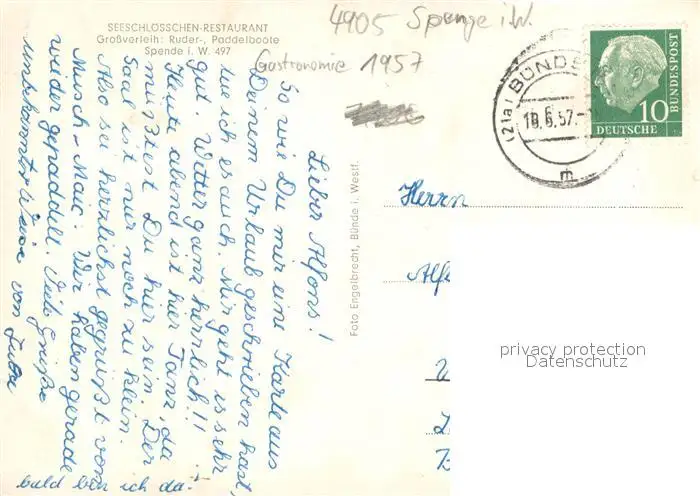 SEESCHLÖSSCHEN-RESTAURANT
Großverleih: Ruder-, Paddelboote
Spende i. W. 497
4905 Spenge i.W.
Gastronomie 1957
(21a) BÜNDE
18.6.57.-
m
DEUTSCHE
BUNDESPOST
10
Lieber Alfons!
So wie Du mir eine Karte aus
Deinem Urlaub geschrieben hast,
tue ich es auch. Mir geht es sehr
gut. Wetter ganz herrlich!!
Heute abend ist hier Tanz, da
müßtest Du hier sein. Der
Saal ist nur noch zu klein.
Also sei herzlichst gegrüßt von
Musch-Maic. Wir haben gerade
wieder gepaddelt. Viele Grüße
unbekannterweise von
bald bin ich da!
Foto Engelbrecht, Bünde i. Westf.
Herrn
Alf
privacy protection
Datenschutz